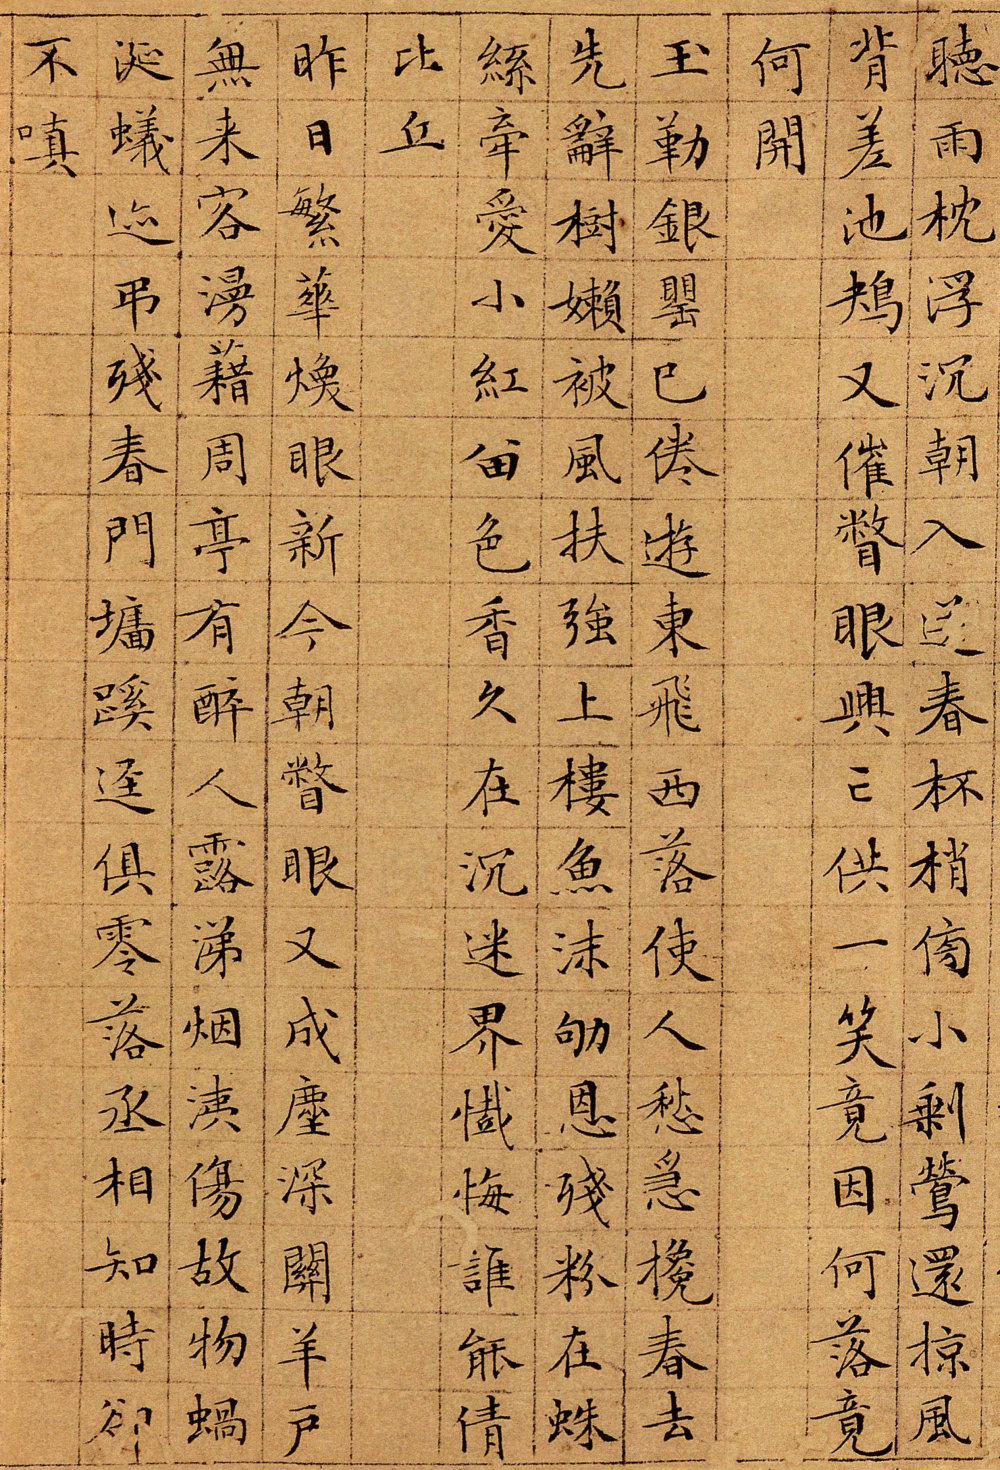 聴雨枕浮沉朝入送春杯梢傍小剩鶯還掠風
背差池鴂又催瞥眼興亡供一笑竟因何落竟
何開
玉勒銀罌已倦遊東飛西落使人愁急攙春去
先辭樹嬾被風扶強上樓魚沫劬恩殘粉在蛛
絲牽愛小紅留色香久在沉迷界懺悔誰能倩
比丘
昨日繁華煥眼新今朝瞥眼又成塵深關羊戶
無来客漫藉周亭有醉人露涕烟洟傷故物蝸
涎蟻迹弔殘春門墻蹊逕俱零落丞相知時卻
不嗔